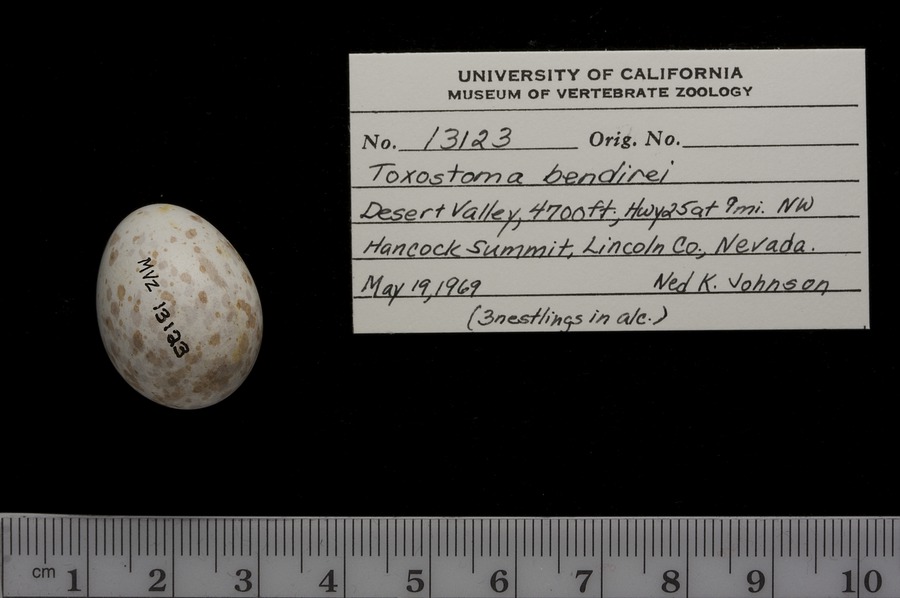 UNIVERSITY OF CALIFORNIA
MUSEUM OF VERTEBRATE ZOOLOGY
No. 13123 Orig. No.
Toxostoma bendirei
Desert Valley, 4700ft., Hwy25 at 9mi. NW
Hancock Summit, Lincoln Co., Nevada.
May 19, 1969 Ned K. Johnson
(3 nestlings in alc.)
MVZ 13123
cm 1 2 3 4 5 6 7 8 9 10